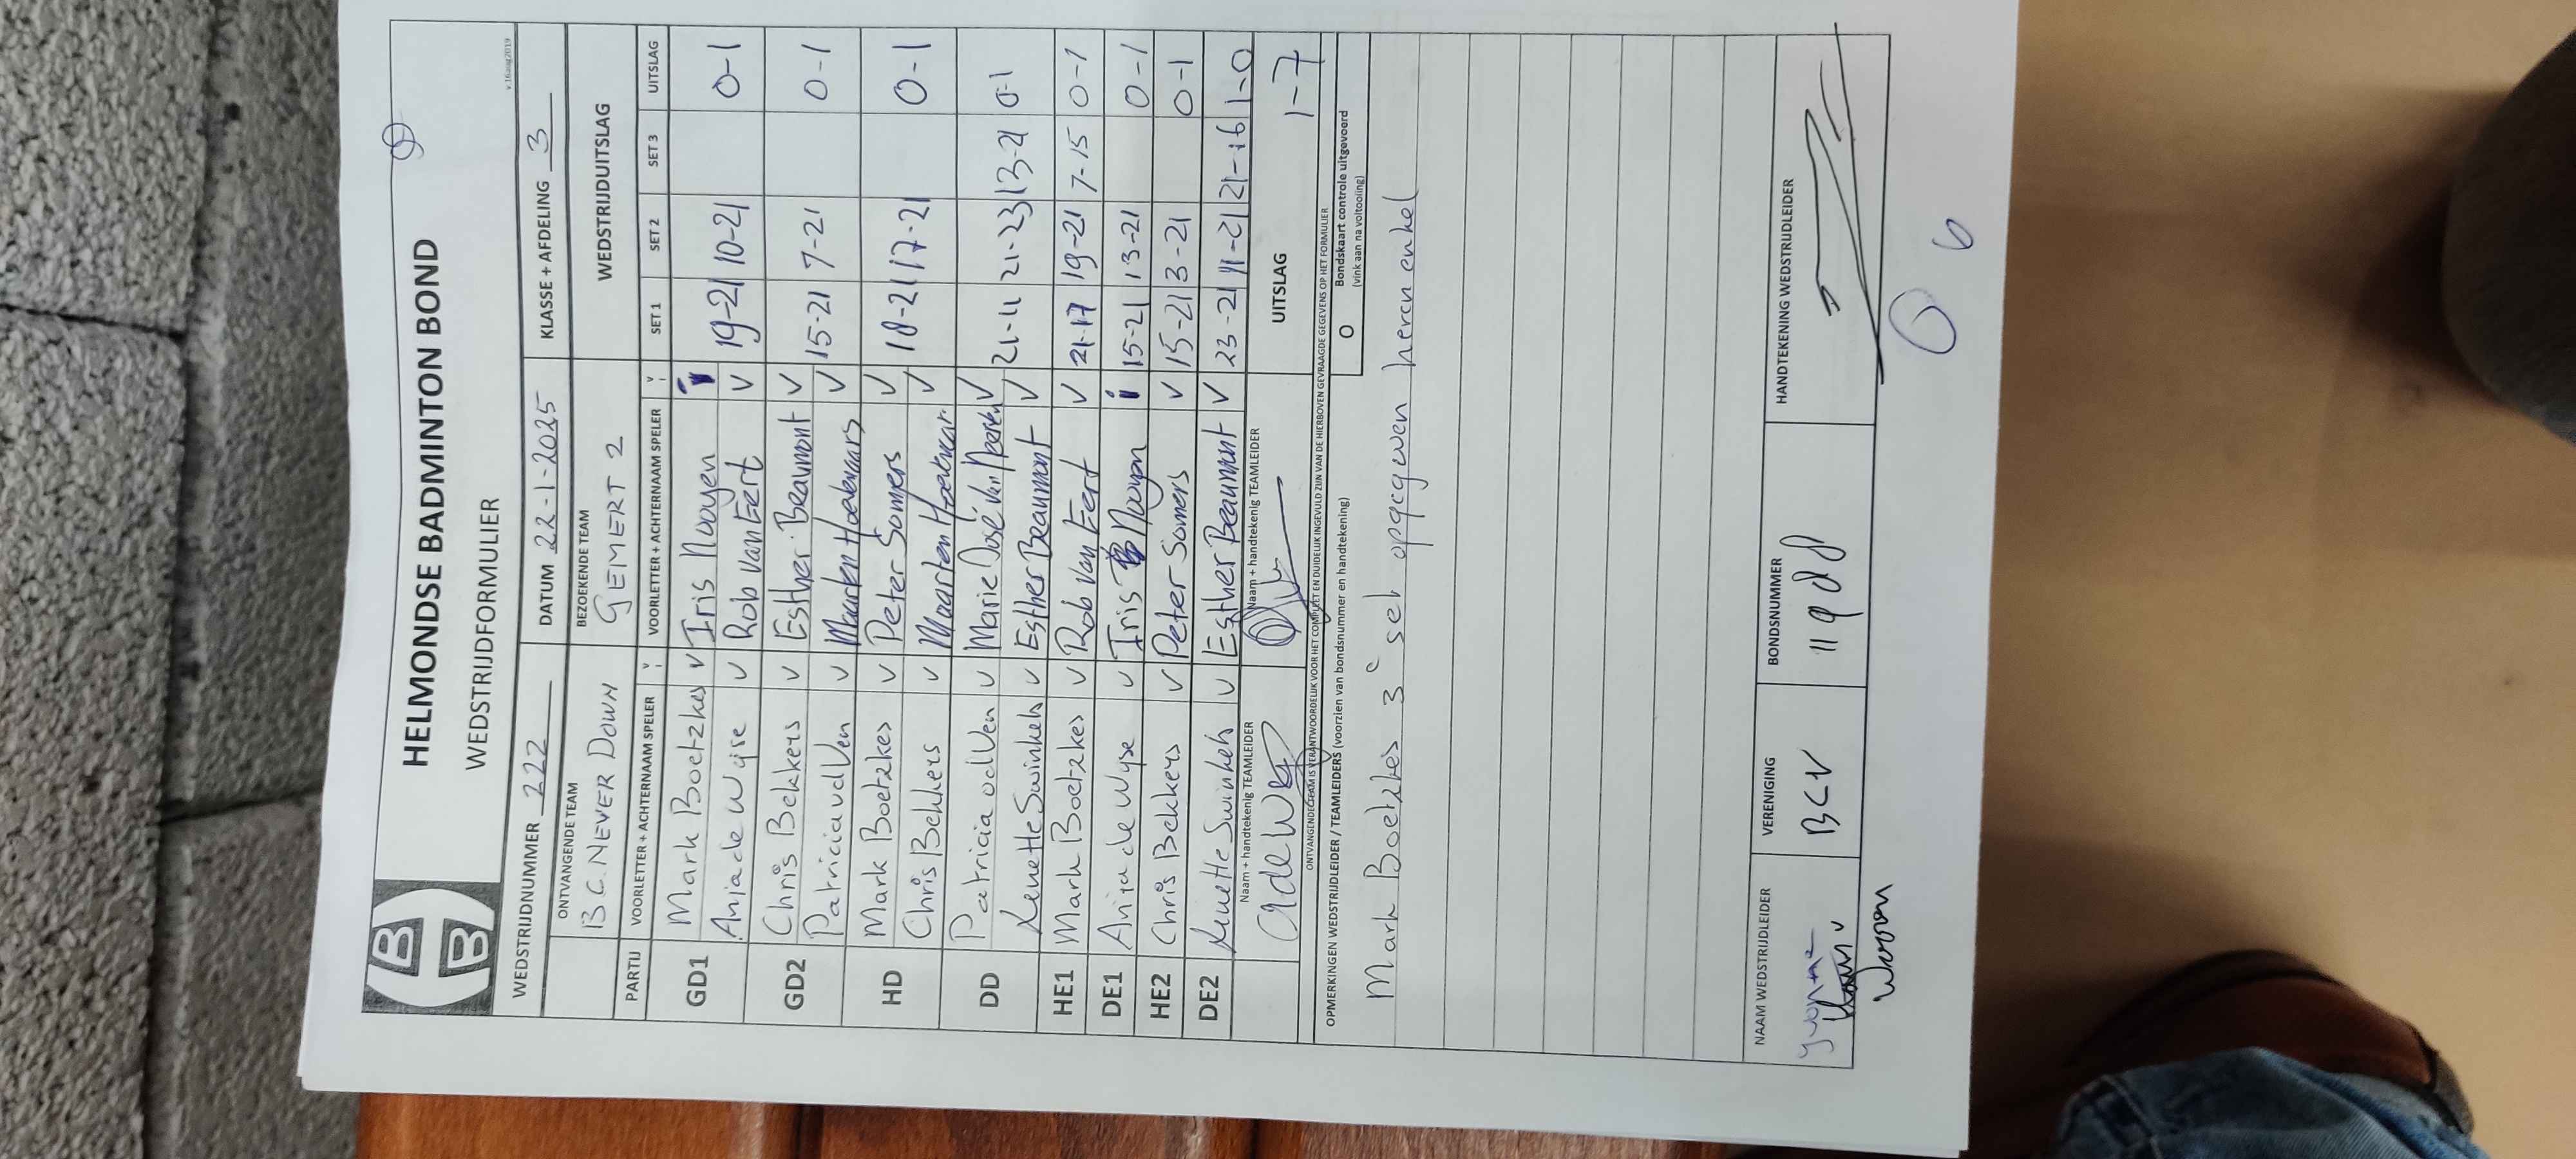 HELMONDSE BADMINTON BOND
v.16aug2019
WEDSTRIJDFORMULIER
WEDSTRIJDNUMMER 222 DATUM 22-1-2025 KLASSE + AFDELING 3
ONTVANGENDE TEAM BEZOEKENDE TEAM WEDSTRIJDUITSLAG
B.C. NEVER DOWN GEMERT 2
PARTIJ VOORLETTER + ACHTERNAAM SPELER V VOORLETTER + ACHTERNAAM SPELER V SET 1 SET 2 SET 3 UITSLAG
GD1 Mark Boetzkes V Iris Nooyen
Anja de Wijse V Rob van Eert V 19-21 10-21 0-1
GD2 Chris Bekkers V Esther Beaumont V
Patricia vd Ven V Maarten Hoedemaars V 15-21 7-21 0-1
HD Mark Boetzkes V Peter Somers V
Chris Bekkers V Maarten V 18-21 17-21 0-1
DD Patricia vd Ven V Marie José van V
Lunette Swinkels V Esther Beaumont V 21-11 21-23 13-21 0-1
HE1 Mark Boetzkes V Rob van Eert V 21-17 19-21 7-15 0-1
DE1 Anja de Wijse V Iris Nooyen 15-21 13-21 0-1
HE2 Chris Bekkers V Peter Somers V 15-21 13-21 0-1
DE2 Lunette Swinkels V Esther Beaumont V 23-21 11-21 21-16 1-0
Naam + handtekenig TEAMLEIDER Naam + handtekenig TEAMLEIDER UITSLAG 1-7
ONTVANGENDE TEAM IS VERANTWOORDELIJK VOOR HET COMPLEET EN DUIDELIJK INGEVULD ZIJN VAN DE HIERBOVEN GEVRAAGDE GEGEVENS OP HET FORMULIER
OPMERKINGEN WEDSTRIJDLEIDER / TEAMLEIDERS (voorzien van bondsnummer en handtekening) O Bondskaart controle uitgevoerd
(vink aan na voltooiing)
Mark Boetzkes 3e set opgegeven herenenkel
NAAM WEDSTRIJDLEIDER VERENIGING BONDSNUMMER HANDTEKENING WEDSTRIJDLEIDER
Yvonne BCV
0 6